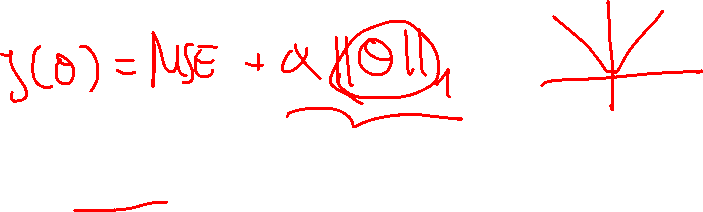 J(θ) = MSE + α ||θ||₁